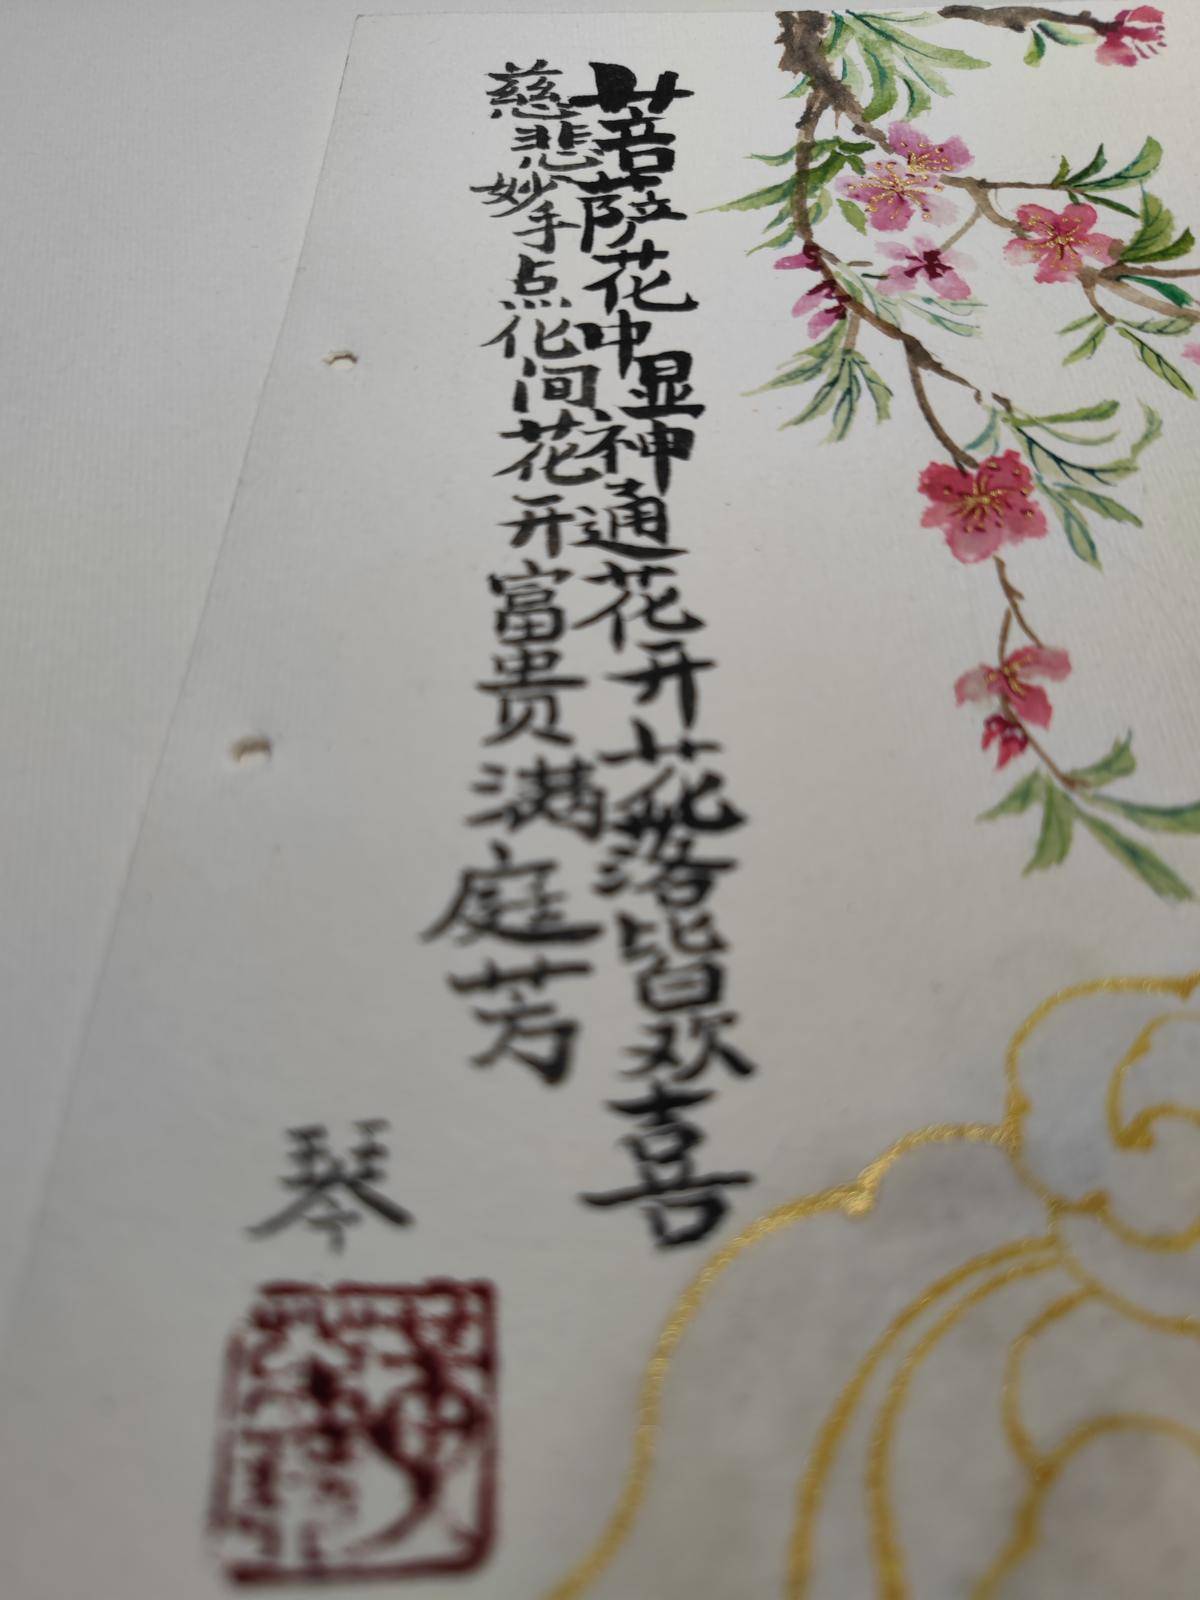 菩萨花中显神通花开花落皆欢喜
慈悲妙手点化间花开富贵满庭芳
琴